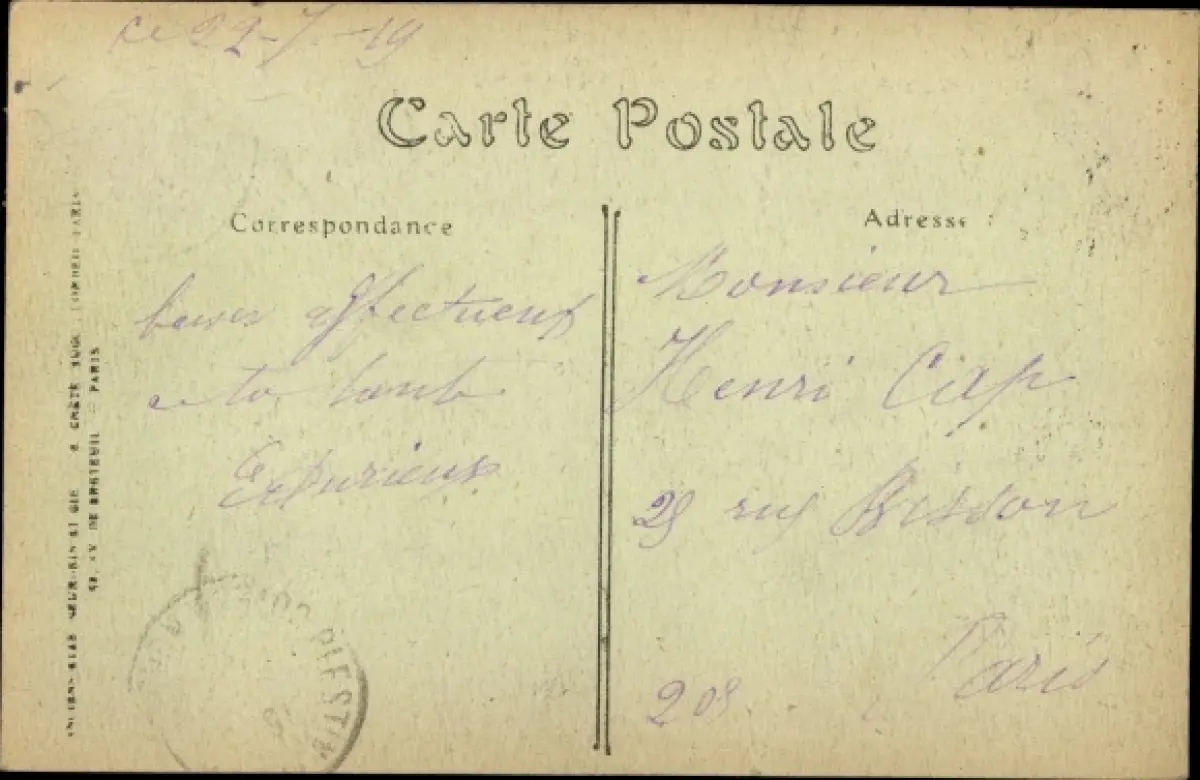 Ce 22-7-19
Carte Postale
Correspondance
Adresse :
baises affectueux
ta tante
Monsieur
Henri Ciap
29 rue Bisson
Paris
20e
ANCIENS ETAB. NEURDEIN ET CIE
52, AV. DE BRETEUIL - PARIS
PLESTIN